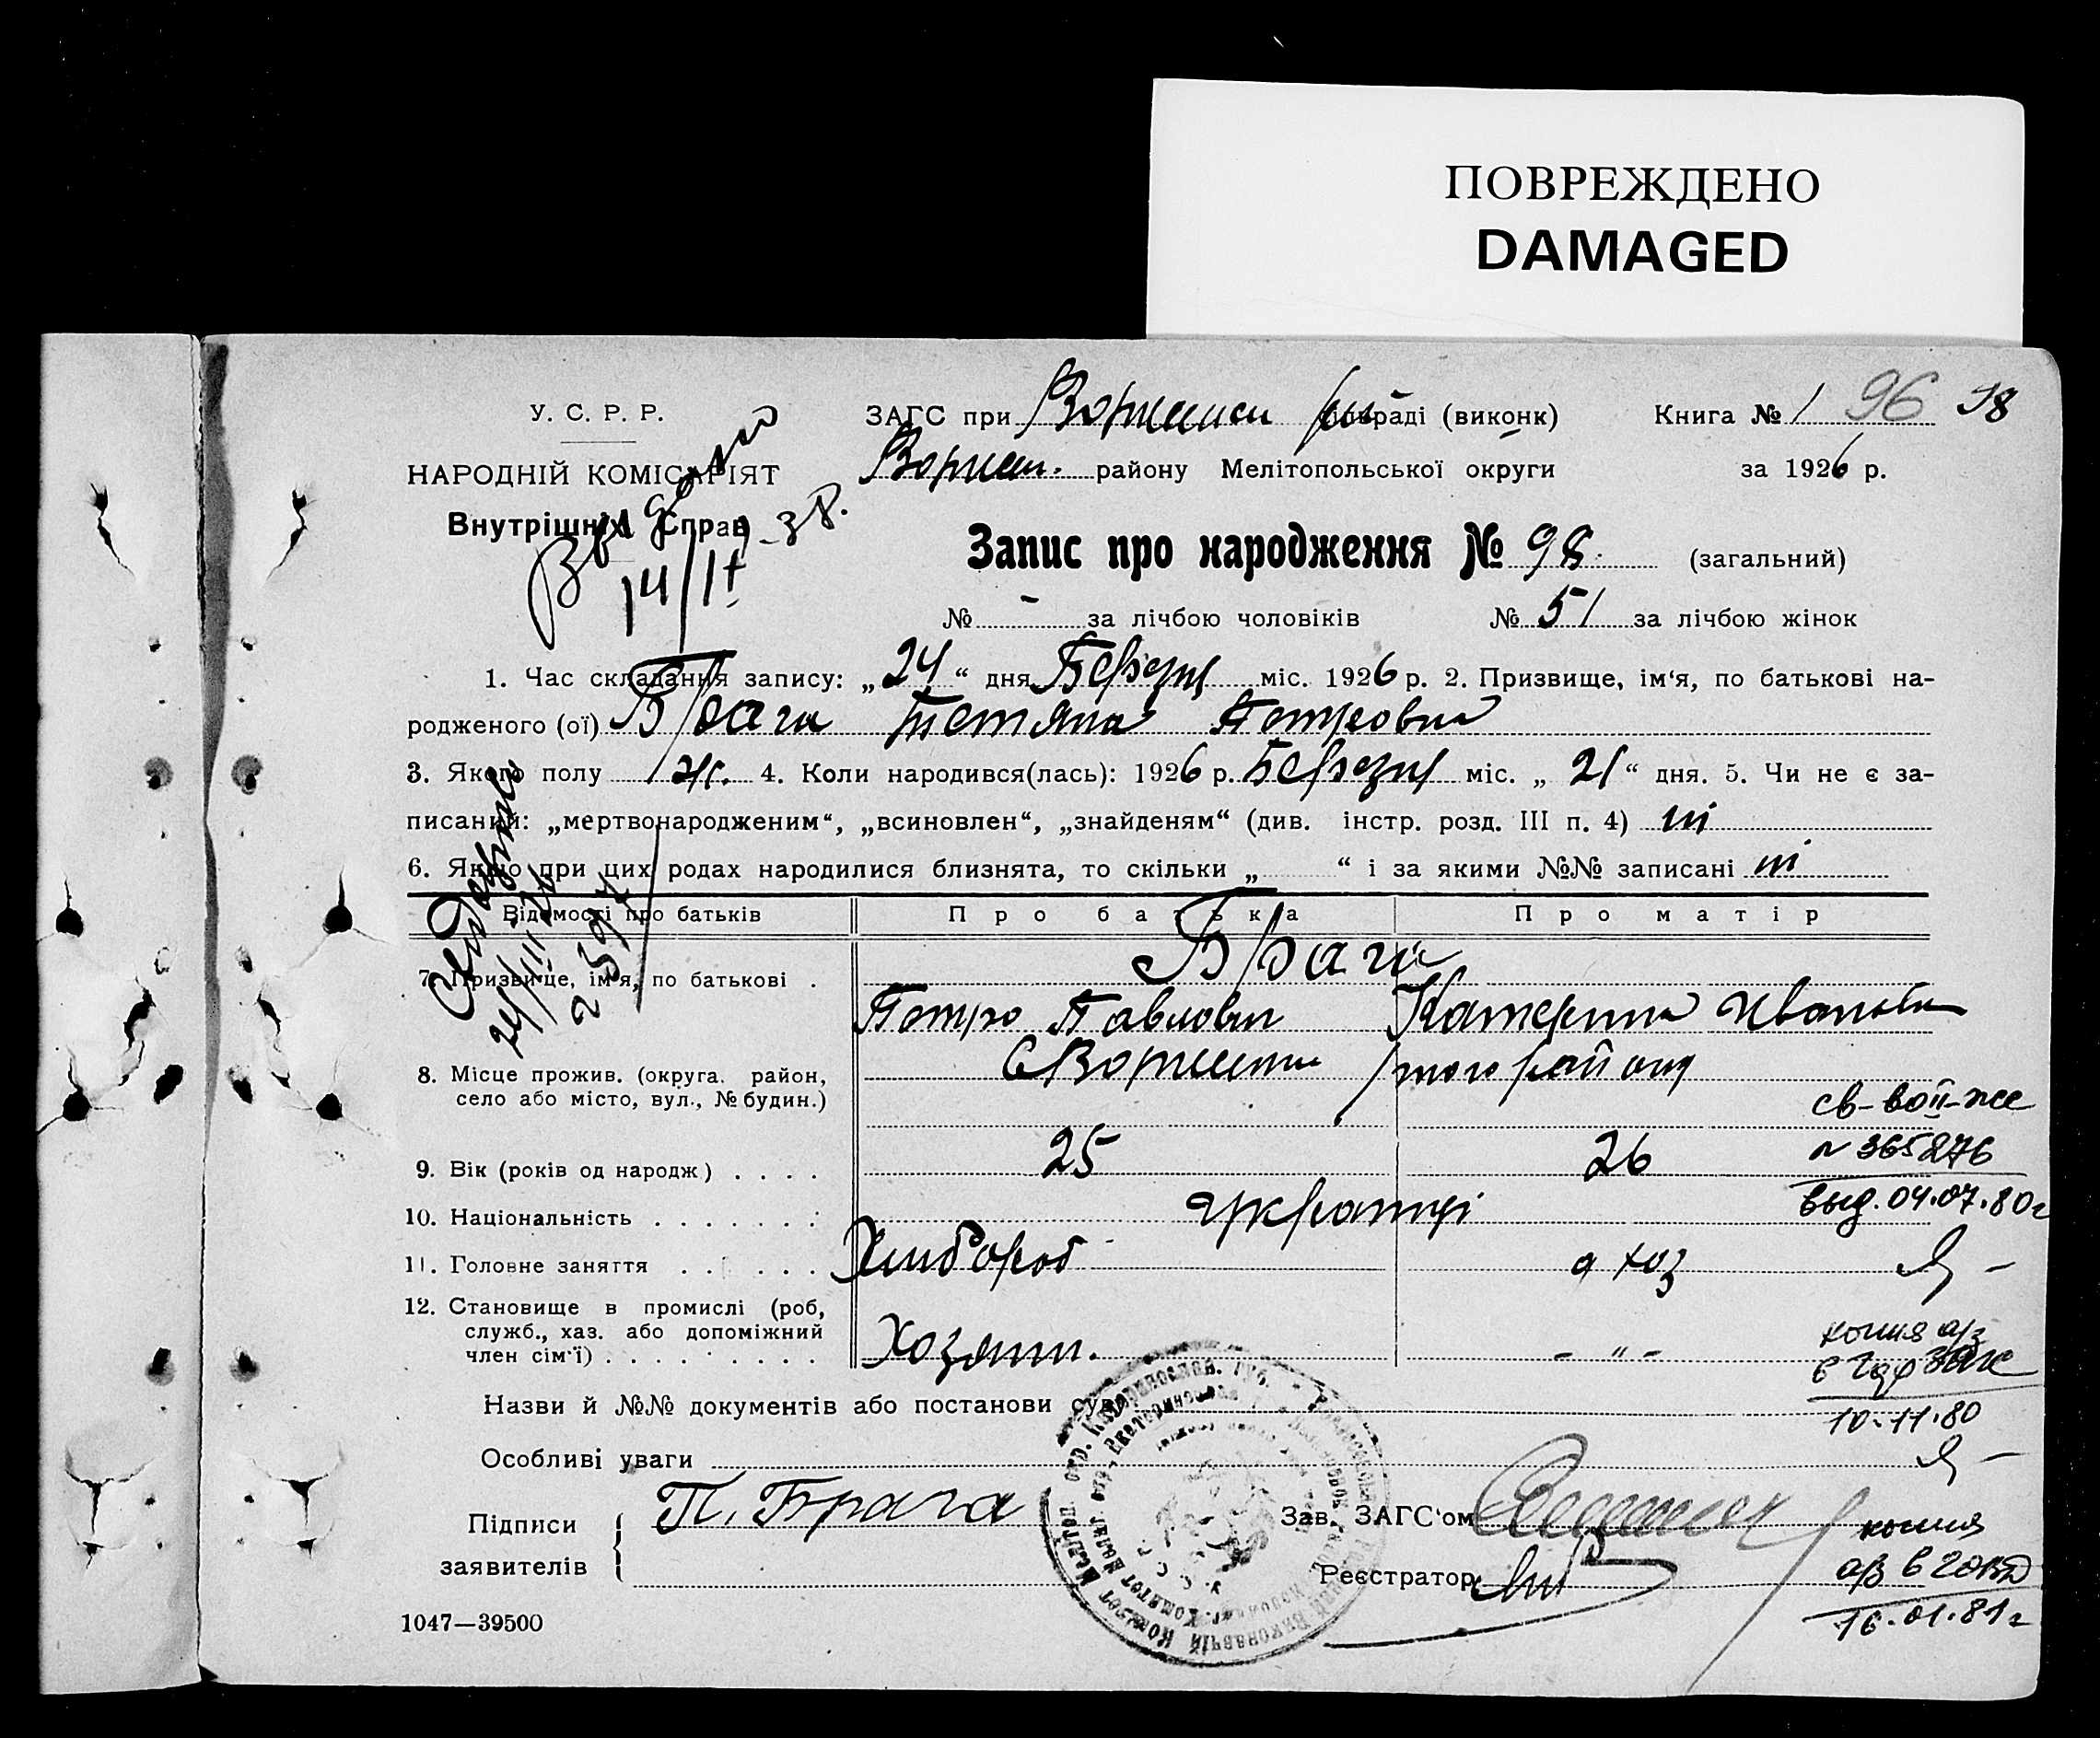 ПОВРЕЖДЕНО
DAMAGED
У. С. Р. Р.
НАРОДНІЙ КОМІСАРІЯТ
Внутрішніх Справ
14/II
ЗАГС при сільраді (виконк)
району Мелітопольської округи
Книга № 1 96 98
за 1926 р.
Запис про народження № 98 (загальний)
№ - за лічбою чоловіків № 51 за лічбою жінок
1. Час складання запису: „24“ дня Березня міс. 1926 р. 2. Призвище, ім‘я, по батькові на-
родженого (ої) Брага Тетяна Петровна
3. Якого полу ж. 4. Коли народився(лась): 1926 р. Березня міс. „21“ дня. 5. Чи не є за-
писаний: „мертвонародженим“, „всиновлен“, „знайденям“ (див. інстр. розд. III п. 4) ні
6. Якщо при цих родах народилися близнята, то скільки „ “ і за якими №№ записані ні
Відомості про батьків Про батька Про матір
7. Призвище, ім‘я, по батькові . Брага
Петро Павлович Катерина Ивановна
8. Місце прожив. (округа. район,
село або місто, вул., № будин.)
того району
св-во II-же
№ 365276
выд. 04.07.80г
9. Вік (років од народж) . . . . 25 26
10. Національність . . . . . . . українці
11. Головне заняття . . . . . . Хлібороб д хоз
12. Становище в промислі (роб,
служб., хаз. або допоміжний
член сім‘ї) . . . . . . . . . Хозяин. - " -
копия а/з
10.11.80
Назви й №№ документів або постанови суду
Особливі уваги
Підписи
заявителів
П. Брага
Зав. ЗАГС‘ом
Реєстратор
копия
а/з в
16.01.81г
1047—39500